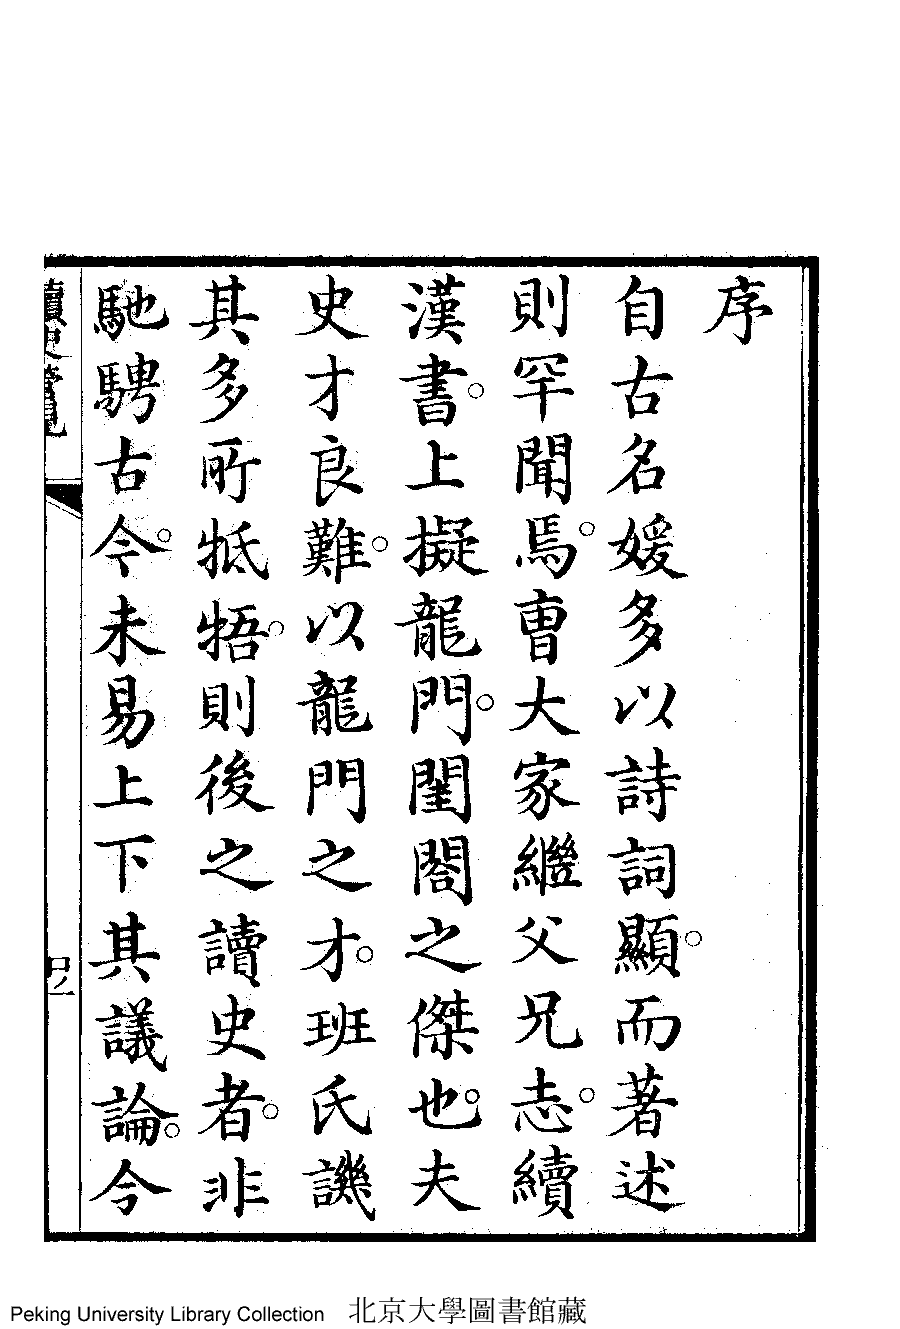 序
自古名媛多以詩詞顯。而著述
則罕聞焉。曹大家繼父兄志。續
漢書。上擬龍門。閨閤之傑也。夫
史才良難。以龍門之才。班氏譏
其多所牴牾。則後之讀史者。非
馳騁古今。未易上下其議論。今
讀史管見
序
Peking University Library Collection 北京大學圖書館藏